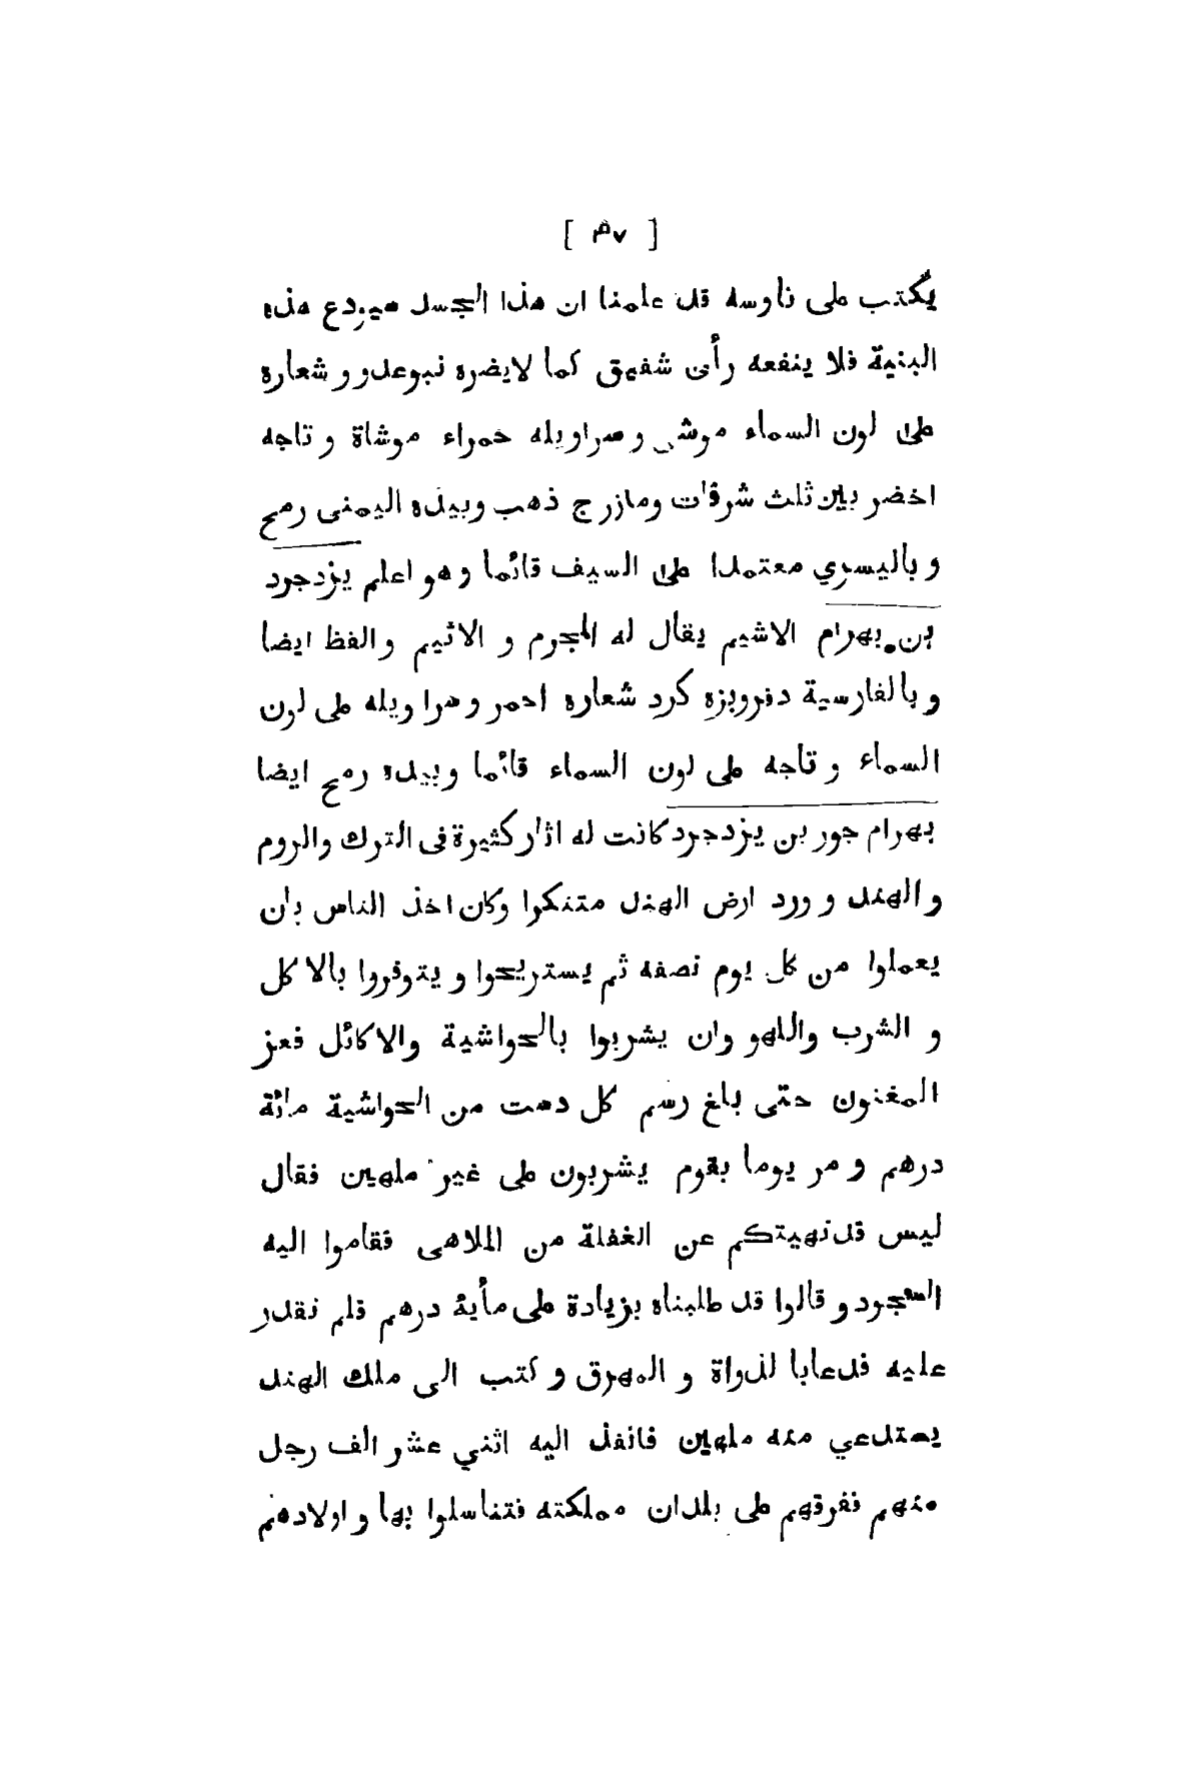 [ ٣٧ ]
يكتب على ناوسه قد علمنا ان هذا الجسد سيودع هذه
البنية فلا ينفعه رأى شفيق كما لايضره نبوعدو و شعاره
على لون السماء موشى و سراويله حمراء موشاة و تاجه
اخضر بين ثلث شرفات ومازرج ذهب وبيده اليمنى رمح
وباليسري معتمدا على السيف قائما وهو اعلم يزدجرد
بن بهرام الاشيم يقال له المجرم و الاثيم والفظ ايضا
وبالفارسية دفروبزه كرد شعاره احمر وسراويله على لون
السماء و تاجه على لون السماء قائما وبيده رمح ايضا
بهرام جور بن يزدجرد كانت له اثار كثيرة فى الترك والروم
والهند و ورد ارض الهند متنكرا وكان اخذ الناس بان
يعملوا من كل يوم نصفه ثم يستريحوا و يتوفروا بالاكل
و الشرب واللهو وان يشربوا بالحواشية والاكائل فعز
المغنون حتى بلغ رسم كل دست من الحواشية مائة
درهم و مر يوما بقوم يشربون على غير ملهين فقال
ليس قد نهيتكم عن الغفلة من الملاهى فقاموا اليه
السجود و قالوا قد طلبناه بزيادة على مأية درهم فلم نقدر
عليه فدعابا لدواة و المهرق و كتب الى ملك الهند
يستدعي منه ملهين فانفذ اليه اثني عشر الف رجل
منهم ففرقهم على بلدان مملكته فتناسلوا بها و اولادهم